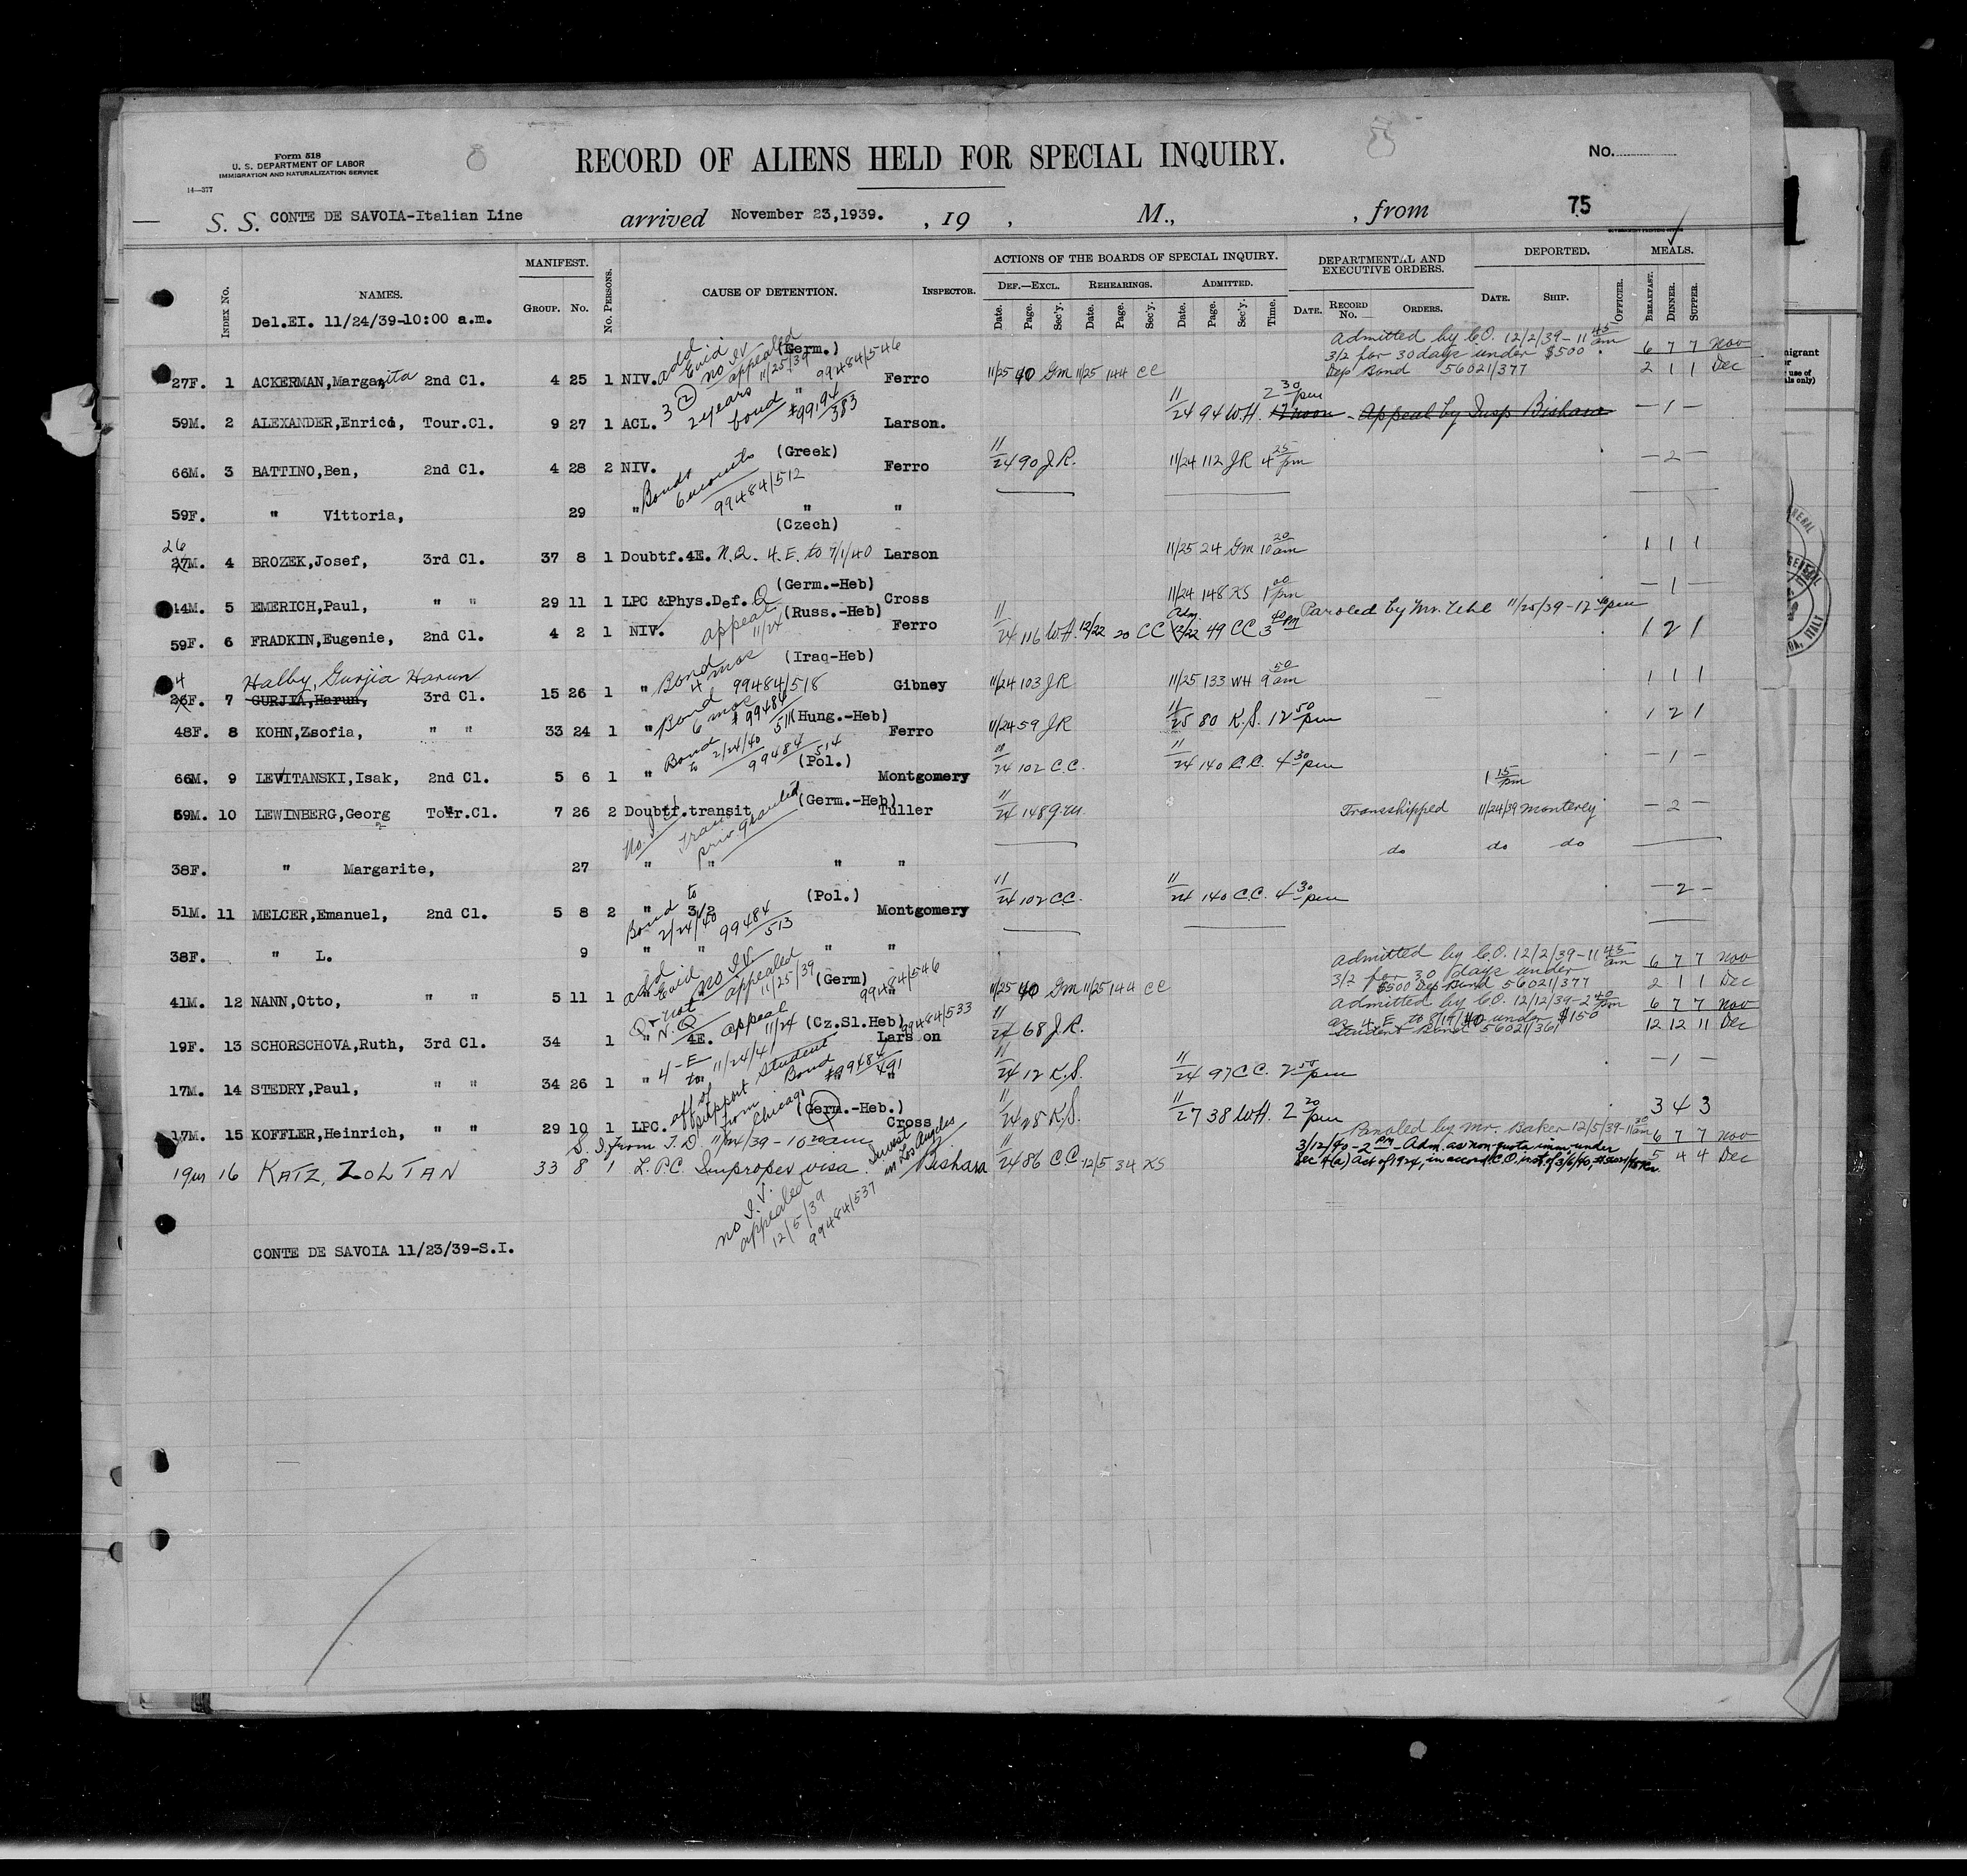 Form 518
U. S. DEPARTMENT OF LABOR
IMMIGRATION AND NATURALIZATION SERVICE
14—377
RECORD OF ALIENS HELD FOR SPECIAL INQUIRY.
No.
S. S. CONTE DE SAVOIA-Italian Line arrived November 23,1939. , 19 , M., , from 75
INDEX No. NAMES. MANIFEST. GROUP. No. No. PERSONS. CAUSE OF DETENTION. INSPECTOR. ACTIONS OF THE BOARDS OF SPECIAL INQUIRY. DEPARTMENTAL AND EXECUTIVE ORDERS. DEPORTED. MEALS.
DEF.—EXCL. REHEARINGS. ADMITTED.
Date. Page. Sec'y. Date. Page. Sec'y. Date. Page. Sec'y. Time. DATE. RECORD No. ORDERS. DATE. SHIP. OFFICER. BREAKFAST. DINNER. SUPPER.
Del.EI. 11/24/39-10:00 a.m.
add Evid no IV appealed 11/25/39 (Germ.) 99484/546
Admitted by C.O. 12/2/39-11 45 am 6 7 7 Nov
3/2 for 30 days under $500
27F. 1 ACKERMAN,Margarita 2nd Cl. 4 25 1 NIV. " Ferro 11/25 40 GM 11/25 144 CC Dep Bond 56021/377 2 1 1 Dec
3 (2) 2 years bond 383
59M. 2 ALEXANDER,Enrico, Tour.Cl. 9 27 1 ACL. Larson. 11/24 94 WH. 2 30 pm 12 noon - Appeal by Insp Bishara — 1 —
(Greek)
66M. 3 BATTINO,Ben, 2nd Cl. 4 28 2 NIV. Ferro 11/24 90 J.R. 11/24 112 JR 4 25 pm — 2 —
Bond 6 months 99484/512
59F. " Vittoria, 29 " " "
(Czech)
26
27M. 4 BROZEK,Josef, 3rd Cl. 37 8 1 Doubtf.4E. N.Q. 4.E. to 7/1/40 Larson 11/25 24 GM 10 20 am 1 1 1
(Germ.-Heb)
14M. 5 EMERICH,Paul, " " 29 11 1 LPC &Phys.Def. Cross 11/24 148 KS 1 00 pm — 1 —
appeal 11/24 (Russ.-Heb) Paroled by Mr. 11/25/39-12 40 pm
59F. 6 FRADKIN,Eugenie, 2nd Cl. 4 2 1 NIV. Ferro 11/24 116 WH. 12/22 20 CC Adm 12/22 49 CC 3 40 PM 1 2 1
Bond 4 mos 99484/518 (Iraq-Heb)
4 Halby, Gurjia Harun
26F. 7 GURJIA,Harun, 3rd Cl. 15 26 1 " Gibney 11/24 103 JR 11/25 133 WH 9 50 am 1 1 1
Bond 6 mos # 99484 511 (Hung.-Heb)
48F. 8 KOHN,Zsofia, " " 33 24 1 " Ferro 11/24 59 JR 11/25 80 K.S. 12 50 pm 1 2 1
Bond to 2/24/40 99484 514 (Pol.)
66M. 9 LEVITANSKI,Isak, 2nd Cl. 5 6 1 " Montgomery 11/24 102 C.C. 11/24 140 C.C. 4 30 pm — 1 —
1 15 pm
(Germ.-Heb)
59M. 10 LEWINBERG,Georg Tour.Cl. 7 26 2 Doubtf.transit Tuller 11/24 148 Transshipped 11/24/39 Monterey — 2 —
No. Trans priv. granted
38F. " Margarite, 27 " " " " do do do
(Pol.)
51M. 11 MELCER,Emanuel, 2nd Cl. 5 8 2 " 3/2 Montgomery 11/24 102 CC. 11/24 140 C.C. 4 30 pm — 2 —
Bond to 2/24/40 99484 513
38F. " L. 9 " " " "
add Evid no IV. appealed 11/25/39 (Germ) 99484/546
Admitted by C.O. 12/2/39-11 45 am 6 7 7 Nov
3/2 for 30 days under
41M. 12 NANN,Otto, " " 5 11 1 " " 11/25 40 GM 11/25 144 CC $500 Dep Bond 56021/377 2 1 1 Dec
Admitted by C.O. 12/12/39-2 40 pm 6 7 7 Nov
N.Q appeal 11/24 (Cz.Sl.Heb) 99484/533
19F. 13 SCHORSCHOVA,Ruth, 3rd Cl. 34 1 " 4E. Larson 11/24 68 J.R. as 4.E. to 8/19/40 under $150 Student Bond 56021/361 12 12 11 Dec
4-E to 11/24/41 Student Bond #99484 491
17M. 14 STEDRY,Paul, " " 34 26 1 " " " 11/24 12 K.S. 11/24 97 CC. 2 50 pm — 1 —
aff of support from Chicago (Germ.-Heb.)
17M. 15 KOFFLER,Heinrich, " " 29 10 1 LPC. Cross 11/24 28 K.S. 11/27 38 WH. 2 20 pm 3 4 3
S.I. from T.D. 11/24/39-10 20 am Invest in Los Angeles
Paroled by Mr. Baker 12/5/39-11 30 am 6 7 7 Nov
3/12/40-2 PM-Adm. as non-quota imm. under
19m 16 KATZ, ZOLTAN 33 8 1 L.P.C. Improper visa Bishara 11/24 86 C.C 12/5 34 KS Sec 4(a) Act of 1924, in accord C.O. inst. of 3/6/40, 5 4 4 Dec
no I.V. appealed 12/5/39 99484/537
CONTE DE SAVOIA 11/23/39-S.I.